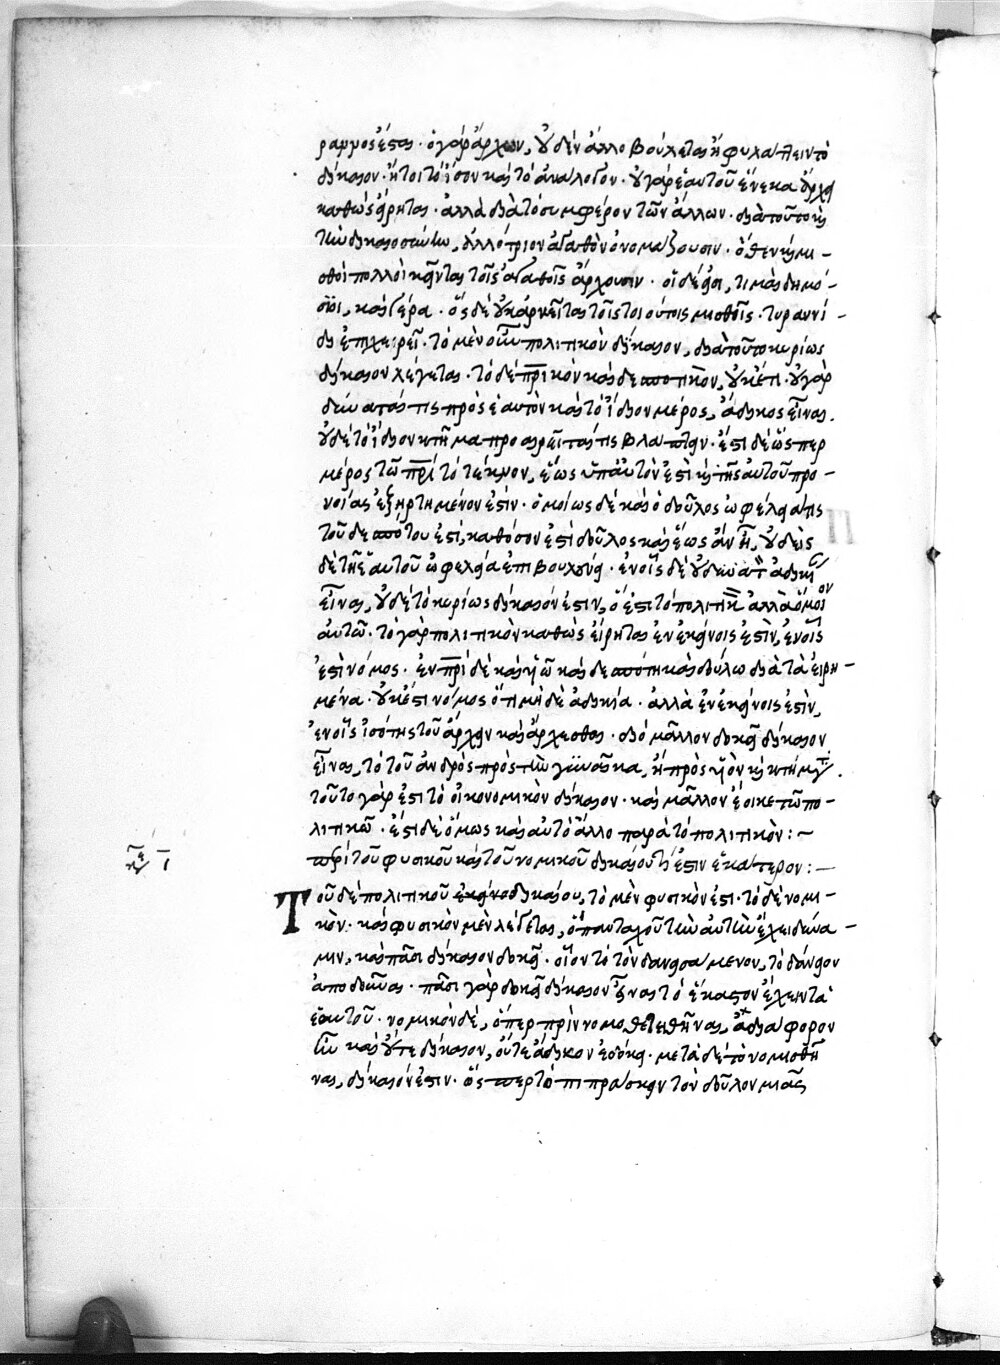 ραμμος ἔσται· ὁ γὰρ ἄρχων, οὐδὲν ἄλλο βούλεται ἢ φυλάττειν τὸ
δίκαιον· ἤτοι τὸ ἴσον καὶ τὸ ἀνάλογον· οὐ γὰρ ἑαυτοῦ ἕνεκα ἄρχει
καθὼς εἴρηται· ἀλλὰ διὰ τὸ συμφέρον τῶν ἄλλων· διὰ τοῦτο καὶ
τὴν δικαιοσύνην, ἀλλότριον ἀγαθὸν ὀνομάζουσιν· ὅθεν καὶ μι-
σθοὶ πολλοὶ κεῖνται τοῖς ἀγαθοῖς ἄρχουσιν· οἵ δέ εἰσι, τιμαὶ δημό-
σιοι, καὶ γέρα· ὃς δὲ οὐκ ἀρκεῖται τοῖς τοιούτοις μισθοῖς· τυραννί-
δι ἐπιχειρεῖ· τὸ μὲν οὖν πολιτικὸν δίκαιον, διὰ τοῦτο κυρίως
δίκαιον λέγεται· τὸ δὲ πρικὸν καὶ δεσποτικὸν, οὐκέτι· οὐ γὰρ
δύναταί τις πρὸς ἑαυτὸν καὶ τὸ ἴδιον μέρος, ἄδικος εἶναι.
οὐδὲ τὸ ἴδιον κτῆμα προαιρεῖταί τις βλάπτειν· ἔστι δὲ ὥσπερ
μέρος τῶ πρὶ τὸ τέκνον, ἕως ὑπ' αὐτὸν ἐστὶ καὶ τῆς αὐτοῦ προ-
νοίας ἐξηρτημένον ἐστίν· ὁμοίως δὲ καὶ ὁ δοῦλος ὠφέλειά τις
τοῦ δεσπότου ἐστί, καθόσον ἐστὶ δοῦλος καὶ ἕως ἂν ᾖ, οὐδεὶς
δὲ τῇ ἑαυτοῦ ὠφελείᾳ ἐπιβουλεύει· ἐν οἷς δὲ οὐ δύναταί τις ἄδικος
εἶναι, οὐδὲ τὸ κυρίως δίκαιόν ἐστιν, ὅ ἐστι τὸ πολιτικὸν ἀλλὰ ὅμοιον
αὐτῶ· τὸ γὰρ πολιτικὸν καθὼς εἴρηται ἐν ἐκείνοις ἐστὶν, ἐν οἷς
ἐστὶ νόμος· ἐν πρὶ δὲ καὶ υἱῶ καὶ δεσπότη καὶ δούλω διὰ τὰ εἰρη-
μένα· οὐκ ἔστι νόμος ὅτι μὴ δὲ ἀδικία· ἀλλὰ ἐν ἐκείνοις ἐστὶν,
ἐν οἷς ἰσότης τοῦ ἄρχειν καὶ ἄρχεσθαι· διὸ μᾶλλον δοκεῖ δίκαιον
εἶναι, τὸ τοῦ ἀνδρὸς πρὸς τὴν γυναῖκα, ἢ πρὸς υἱὸν καὶ κτήματα.
τοῦτο γάρ ἐστι τὸ οἰκονομικὸν δίκαιον· καὶ μᾶλλον ἔοικε τῶ πο-
λιτικῶ· ἔστι δὲ ὅμως καὶ αὐτὸ ἄλλο παρὰ τὸ πολιτικὸν:~
περὶ τοῦ φυσικοῦ καὶ τοῦ νομικοῦ δικαίου τί ἐστιν ἑκάτερον:—
Τοῦ δὲ πολιτικοῦ δικαίου, τὸ μὲν φυσικὸν ἐστι· τὸ δὲ νομι-
κὸν· καὶ φυσικὸν μὲν λέγεται, ὃ πανταχοῦ τὴν αὐτὴν ἔχει δύνα-
μιν, καὶ πᾶσι δίκαιον δοκεῖ· οἷον τὸ τὸν δανεισάμενον, τὸ δάνειον
ἀποδοῦναι· πᾶσι γὰρ δοκεῖ δίκαιον εἶναι τὸ ἕκαστον ἔχειν τὰ
ἑαυτοῦ· νομικὸν δὲ, ὅπερ πρὶν νομοθετεθῆναι, ἀδιάφορον
ἦν καὶ οὔτε δίκαιον, οὔτε ἄδικον ἐδόκει· μετὰ δὲ τὸ νομισθῆ
ναι, δίκαιόν ἐστιν· ὥσπερ τὸ πιπράσκειν τὸν δοῦλον μιᾶς